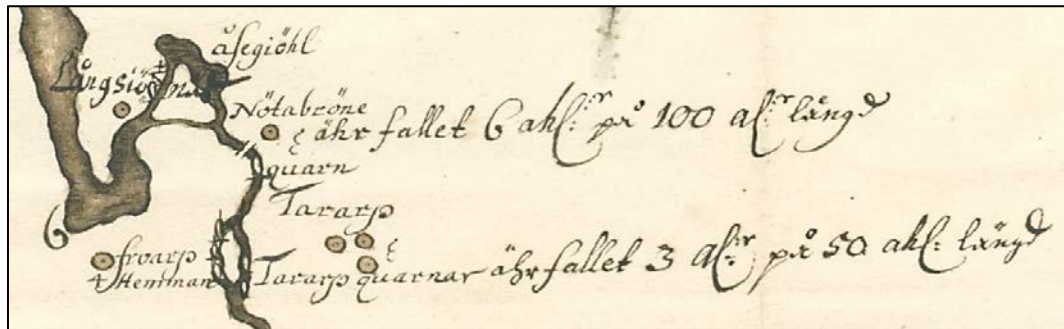 åsegiöhl
Långsiöna
Nötabröne
ähr fallet 6 ahl:r på 100 al:r längd
quarn
Tararp
6
froarp
4 Hemman
Tararp quarnar ähr fallet 3 al:r på 50 ahl: längd